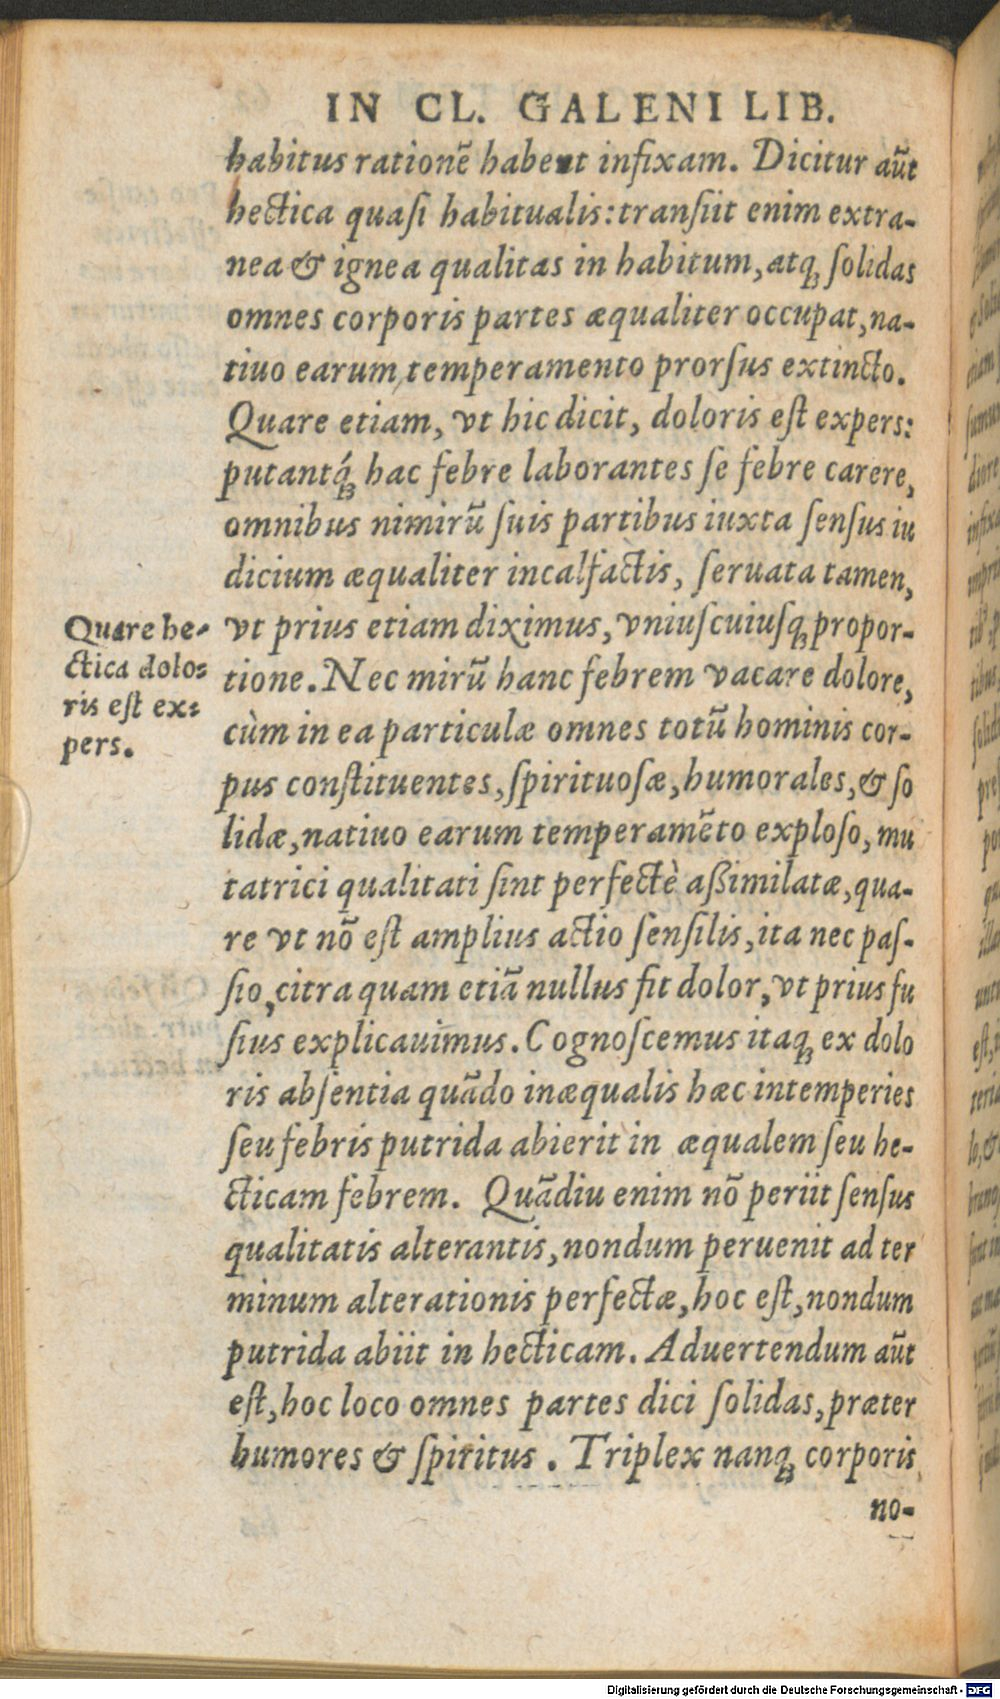 IN CL. GALENI LIB.
habitus rationẽ habent infixam. Dicitur aũt
hectica quasi habitualis: transiit enim extra-
nea & ignea qualitas in habitum, atq; solidas
omnes corporis partes æqualiter occupat, na-
tiuo earum temperamento prorsus extincto.
Quare etiam, vt hic dicit, doloris est expers:
putantq́; hac febre laborantes se febre carere,
omnibus nimirũ suis partibus iuxta sensus iu
dicium æqualiter incalfactis, seruata tamen,
vt prius etiam diximus, vniuscuiusq; propor-
tione. Nec mirũ hanc febrem vacare dolore,
cùm in ea particulæ omnes totũ hominis cor-
pus constituentes, spirituosæ, humorales, & so
lidæ, natiuo earum temperamẽto exploso, mu
tatrici qualitati sint perfectè aßimilatæ, qua-
re vt nõ est amplius actio sensilis, ita nec pas-
sio, citra quam etiã nullus fit dolor, vt prius fu
sius explicauimus. Cognoscemus itaq; ex dolo
ris absentia quãdo inæqualis hæc intemperies
seu febris putrida abierit in æqualem seu he-
cticam febrem. Quãdiu enim nõ periit sensus
qualitatis alterantis, nondum peruenit ad ter
minum alterationis perfectæ, hoc est, nondum
putrida abiit in hecticam. Aduertendum aũt
est, hoc loco omnes partes dici solidas, præter
humores & spiritus. Triplex nanq; corporis
no-
Quare he-
ctica dolo-
ris est ex-
pers.
Digitalisierung gefördert durch die Deutsche Forschungsgemeinschaft - DFG